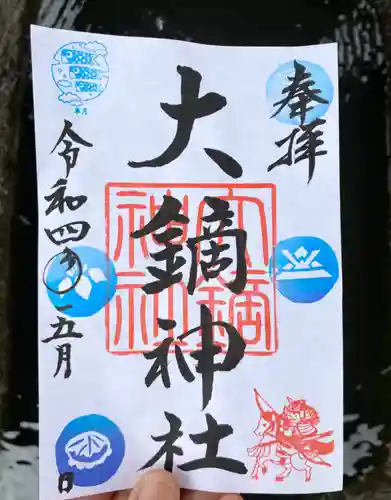 奉拝
大鏑神社
大鏑
神社
令和四年
五月
日
皐月